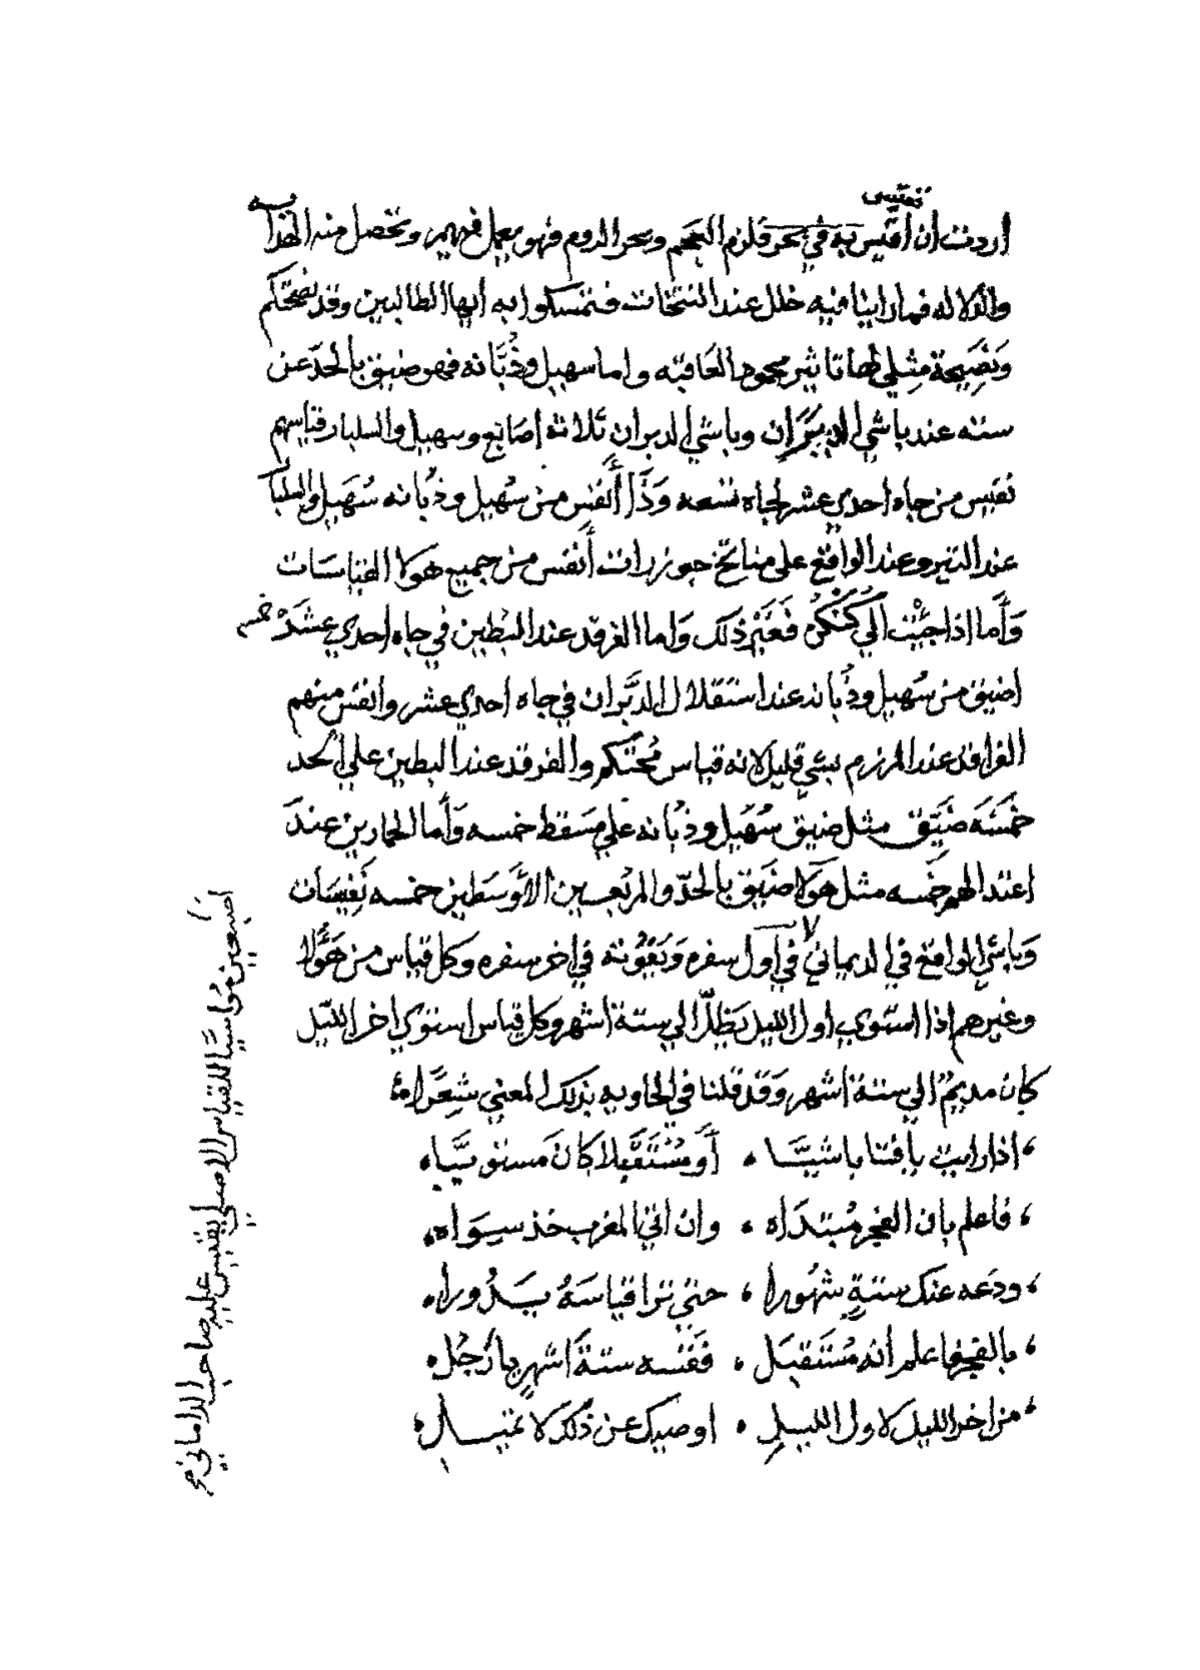 تقيس
أردت أن أقيس به في بحر قلزم العجم وبحر الروم فهو يعمل فيهم وتحصل منه الهدايه
والدلاله فما راينا فيه خلل عند النتخات فتمسكوا به أيها الطالبين وقد نصحتكم
ونصيحة مثلي لها تاثير محمود العاقبه واما سهيل وذُبَّانه فهو ضيق بالحد عن
سته عند باشي الدبران وباشي الدبران ثلاثة إصابع وسهيل والسلبار قياسهم
نفيس من جاه احدي عشر لجاه تسعه وَذَا أَنفس من سُهيل وذُبانه سُهَيل والسلبار
عند التير وعند الواقع على مناتخ جوزرات أنفس من جميع هولا القياسات
وَأما إذا جيْت الي كَنْكَنْ فَغَيِّر ذلك وَاما الفرقد عند البُطين في جاه إحدي عشَرْ خمسه
اضيق من سُهيل وذُبانه عند استقلال الدَّبران في جاه احدي عشر وانفس منهم
الفراقد عند المرزم بشي قليل لانه قياس مُحْتكم والفرقد عند البطين علي الحد
خمْسَه ضَيّق مثل ضيق سُهَيل وذُبانه علي مَسقط خمسه وَأما الحمارين عندَ
اعتدالهم خَمسه مثل هَولا ضَيّق بالحدّ والمربعين الأَوسَطين خمسه نَفِيسَان
وَباشي الواقع في الديماني في أول سفره وَبَعُوْته في اخر سفره وكل قياس من هَؤُلا
وغيرهم إذا استوي اول الليل يَظِلّ الي ستة اشهر وكل قياس استوي اخر الليل
كان مديمٌ الي ستة اشهر وَقَد قلنا في الحاويه بذلك المعني شِعْراً
اذا رايت يا فتا باشيَّا ، أَو مُسْتَقَبلا كَانَ مَستويَّا
فاعلم بان الفجر مُبتدَاه ، وان اتي المغرب خذ سِوَاه
ودَعه عنك ستةٍ شُهُورا ، حتي ترا قياسَهُ يَدُورا
بالفجر فاعلم أنه مُستَقبَل ، فَقسه ستةَ أشهرٍ يا رَجُل
من اخر الليل لاول الليلِ ، اوصيك عن ذَلكَ لا تميل
اصبعين مُواسيًّا للقياس الاصلي بقيس عليه صاحب الداماني صح